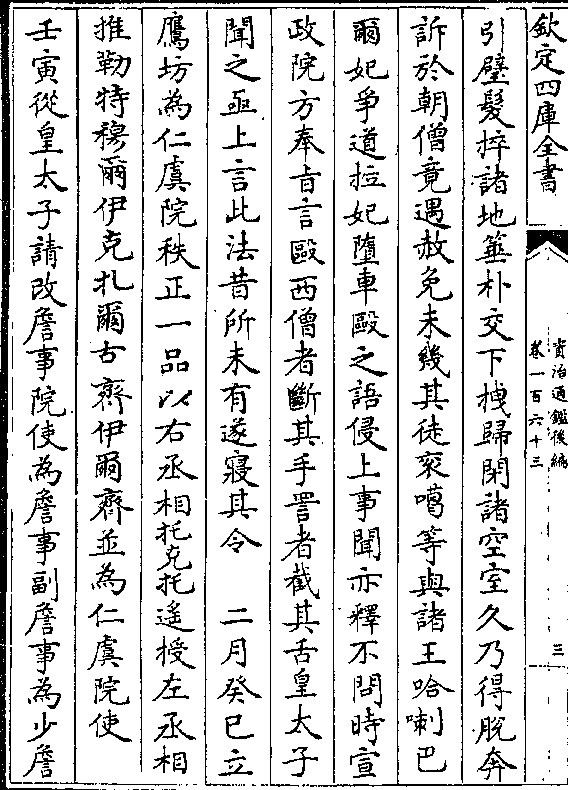 欽定四庫全書
資治通鑑後編
卷一百六十三
三
引璧髮捽諸地箠朴交下拽歸閉諸空室久乃得脫奔
訴於朝僧竟遇赦免未幾其徒袞噶等與諸王哈喇巴
爾妃爭道拉妃墮車毆之語侵上事聞亦釋不問時宣
政院方奉旨言毆西僧者斷其手詈者截其舌皇太子
聞之亟上言此法昔所未有遂寢其令　二月癸巳立
鷹坊為仁虞院秩正一品以右丞相托克托遙授左丞相
推勒特穆爾伊克扎爾古齊伊爾齊並為仁虞院使
壬寅從皇太子請改詹事院使為詹事副詹事為少詹